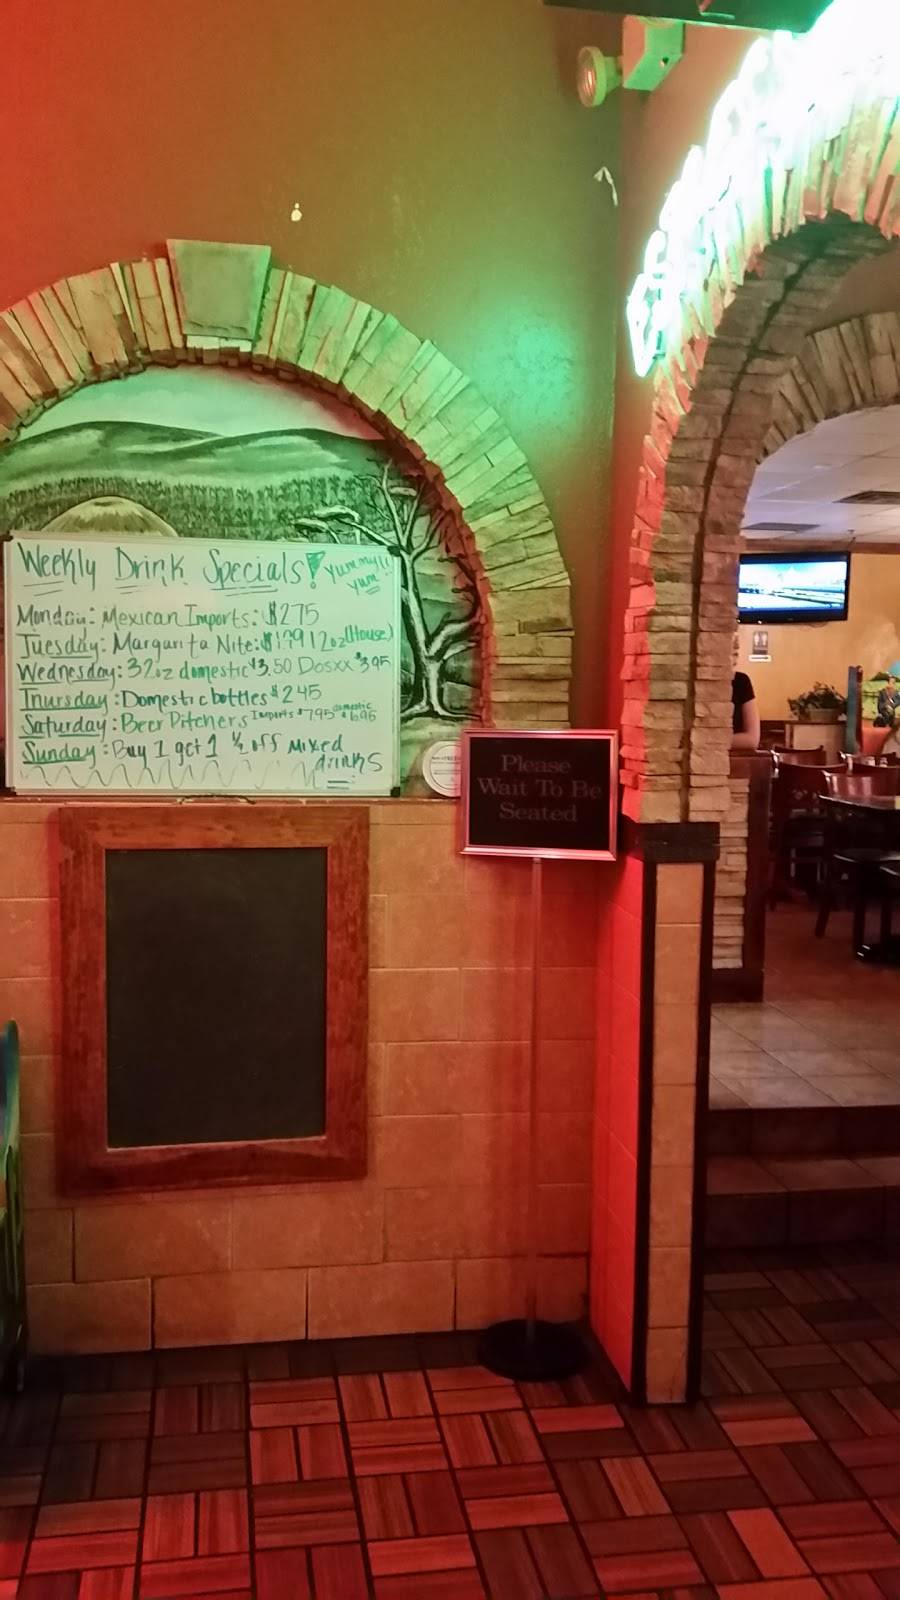 Weekly Drink Specials! Yummy!!
Yum
Monday: Mexican Imports: $275
Tuesday: Margarita Nite: $1.99 12oz (House)
Wednesday: 32oz domestic $3.50 Dosxx $3.95
Thursday: Domestic bottles $2.45
Saturday: Beer Pitchers Imports $7.95 domestic $6.95
Sunday: Buy 1 get 1 1/2 off mixed
drinks
Please
Wait To Be
Seated